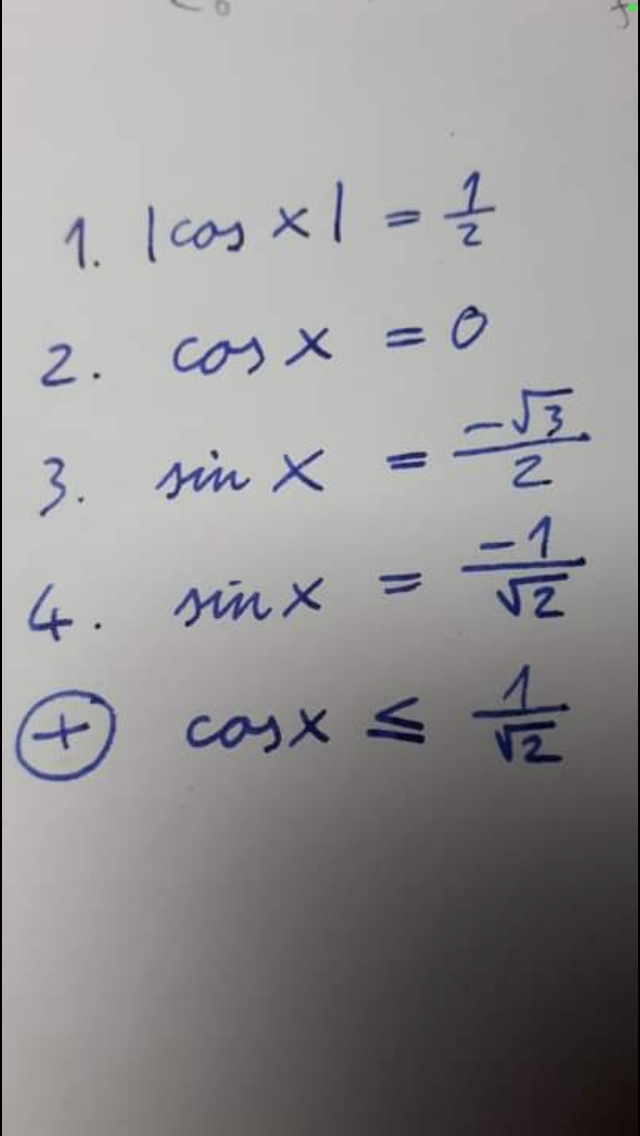 1. |cos x| = 1/2
2. cos x = 0
3. sin x = -√3/2
4. sin x = -1/√2
+ cos x ≤ 1/√2